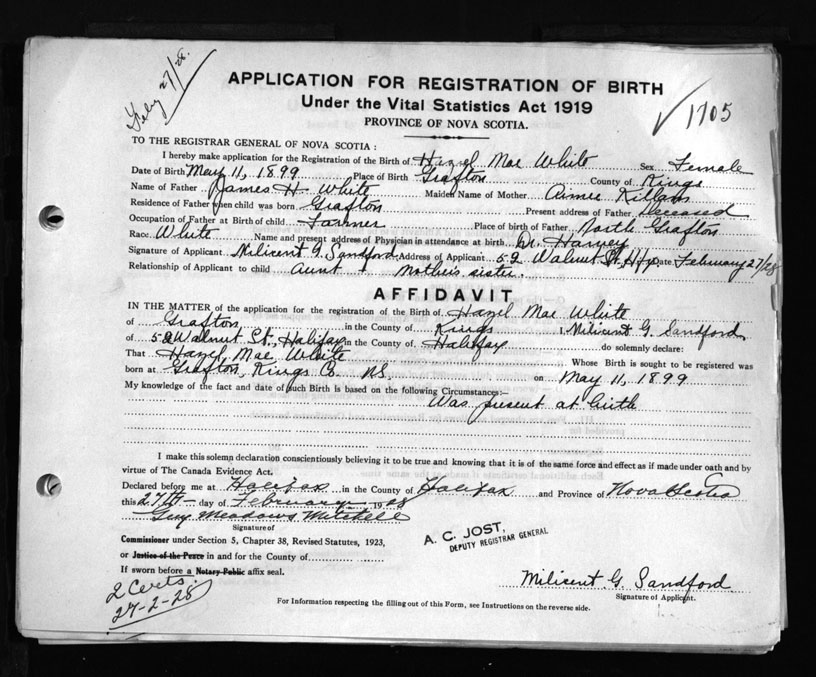 Feby 27/28.
APPLICATION FOR REGISTRATION OF BIRTH
Under the Vital Statistics Act 1919
PROVINCE OF NOVA SCOTIA.
✓ 1705
TO THE REGISTRAR GENERAL OF NOVA SCOTIA :
I hereby make application for the Registration of the Birth of Hazel Mae White Sex Female
Date of Birth May 11, 1899 Place of Birth Grafton County of Kings
Name of Father James H. White Maiden Name of Mother Aimee Killam
Residence of Father when child was born Grafton Present address of Father deceased
Occupation of Father at Birth of child Farmer Place of birth of Father North Grafton
Race White Name and present address of Physician in attendance at birth Dr. Harvey
Signature of Applicant Milicent G. Sandford Address of Applicant 52 Walnut St. Hfx Date February 27/28
Relationship of Applicant to child aunt mothers sister.
AFFIDAVIT
IN THE MATTER of the application for the registration of the Birth of Hazel Mae White
of Grafton in the County of Kings I, Milicent G. Sandford
of 52 Walnut St., Halifax in the County of Halifax do solemnly declare:
That Hazel Mae White Whose Birth is sought to be registered was
born at Grafton, Kings Co. N.S. on May 11, 1899
My knowledge of the fact and date of such Birth is based on the following Circumstances:—
Was present at birth
I make this solemn declaration conscientiously believing it to be true and knowing that it is of the same force and effect as if made under oath and by
virtue of The Canada Evidence Act.
Declared before me at Halifax in the County of Halifax and Province of Nova Scotia
this 27th day of February 1928
Guy Meadows Mitchell
Signature of
Commissioner under Section 5, Chapter 38, Revised Statutes, 1923,
or Justice of the Peace in and for the County of
If sworn before a Notary Public affix seal.
A. C. JOST,
DEPUTY REGISTRAR GENERAL
Milicent G. Sandford
Signature of Applicant.
2 Certs.
27-2-28
For Information respecting the filling out of this Form, see Instructions on the reverse side.